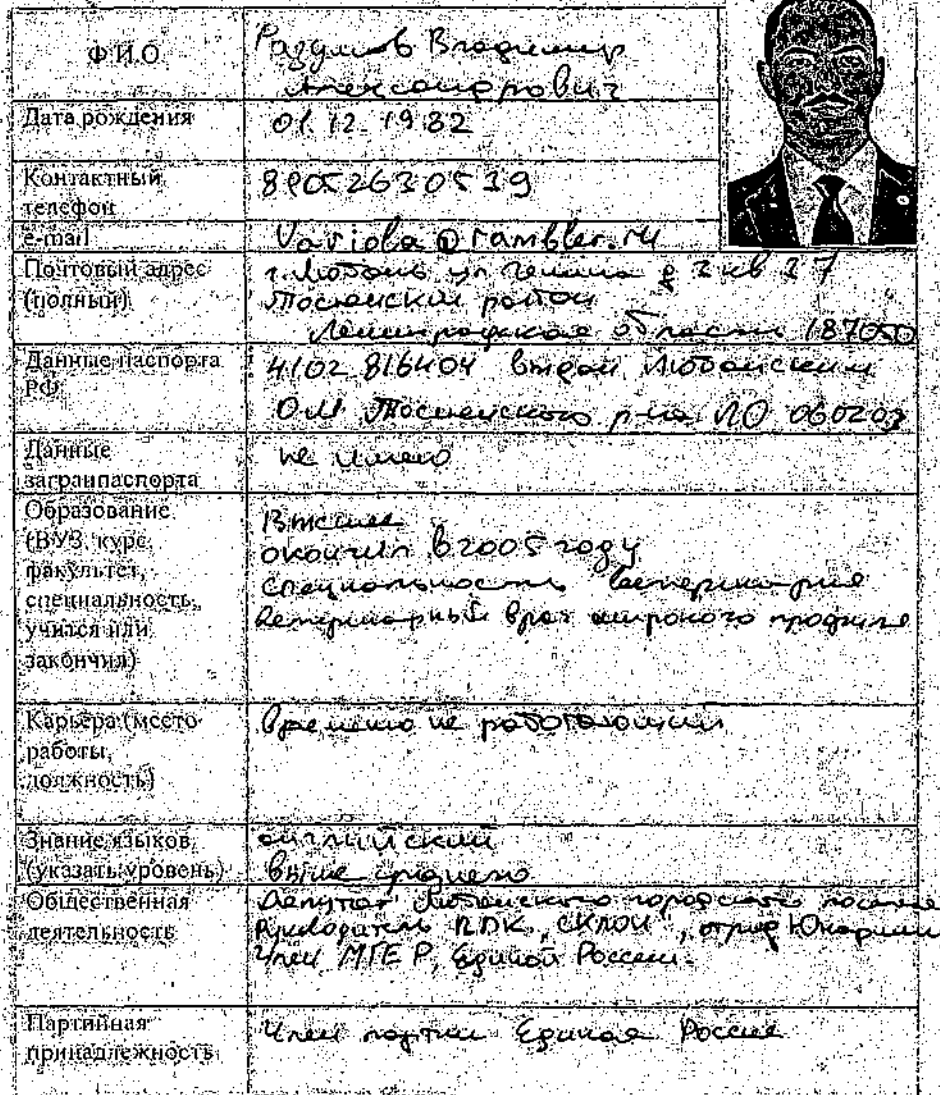 Ф.И.О.
Раздумов Владимир
Александрович
Дата рождения
01.12.1982
Контактный
телефон
89052630539
e-mail
Variola@rambler.ru
Почтовый адрес
(полный)
г. Любань ул Ленина д 3 кв 37
Тосненский район
Ленинградская область 187050
Данные паспорта
РФ
4102 816404 выдан Любанским
ОМ Тосненского р-на ЛО 060203
Данные
загранпаспорта
не имею
Образование
(ВУЗ, курс,
факультет,
специальность,
учится или
закончил)
Высшее
окончил в 2005 году
специальность ветеринария
ветеринарный врач широкого профиля
Карьера (место
работы,
должность)
Временно не работающий
Знание языков
(указать уровень)
английский
выше среднего
Общественная
деятельность
Депутат Любанского городского
Руководитель
Член МГЕР, Единой России.
Партийная
принадлежность
Член партии Единая Россия